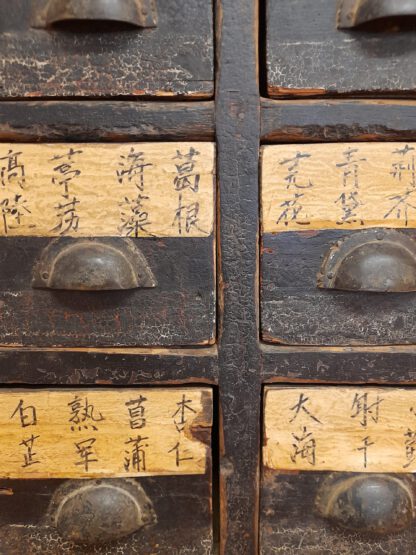 荆芥
青黛
芫花
葛根
海藻
葶苈
商陸
射干
大海
杏仁
菖蒲
熟军
白芷